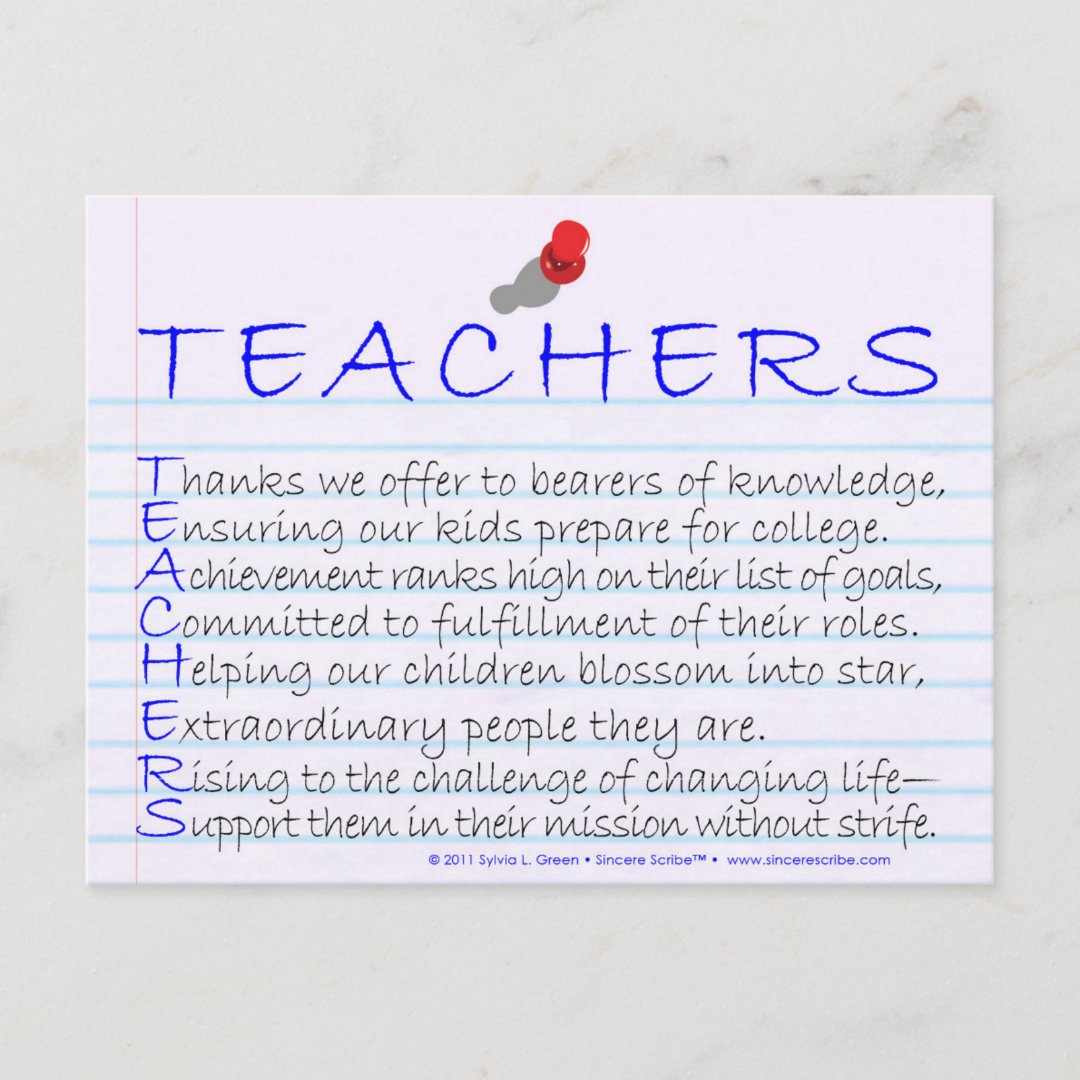 TEACHERS
Thanks we offer to bearers of knowledge,
Ensuring our kids prepare for college.
Achievement ranks high on their list of goals,
Committed to fulfillment of their roles.
Helping our children blossom into star,
Extraordinary people they are.
Rising to the challenge of changing life—
Support them in their mission without strife.
© 2011 Sylvia L. Green • Sincere Scribe™ • www.sincerescribe.com